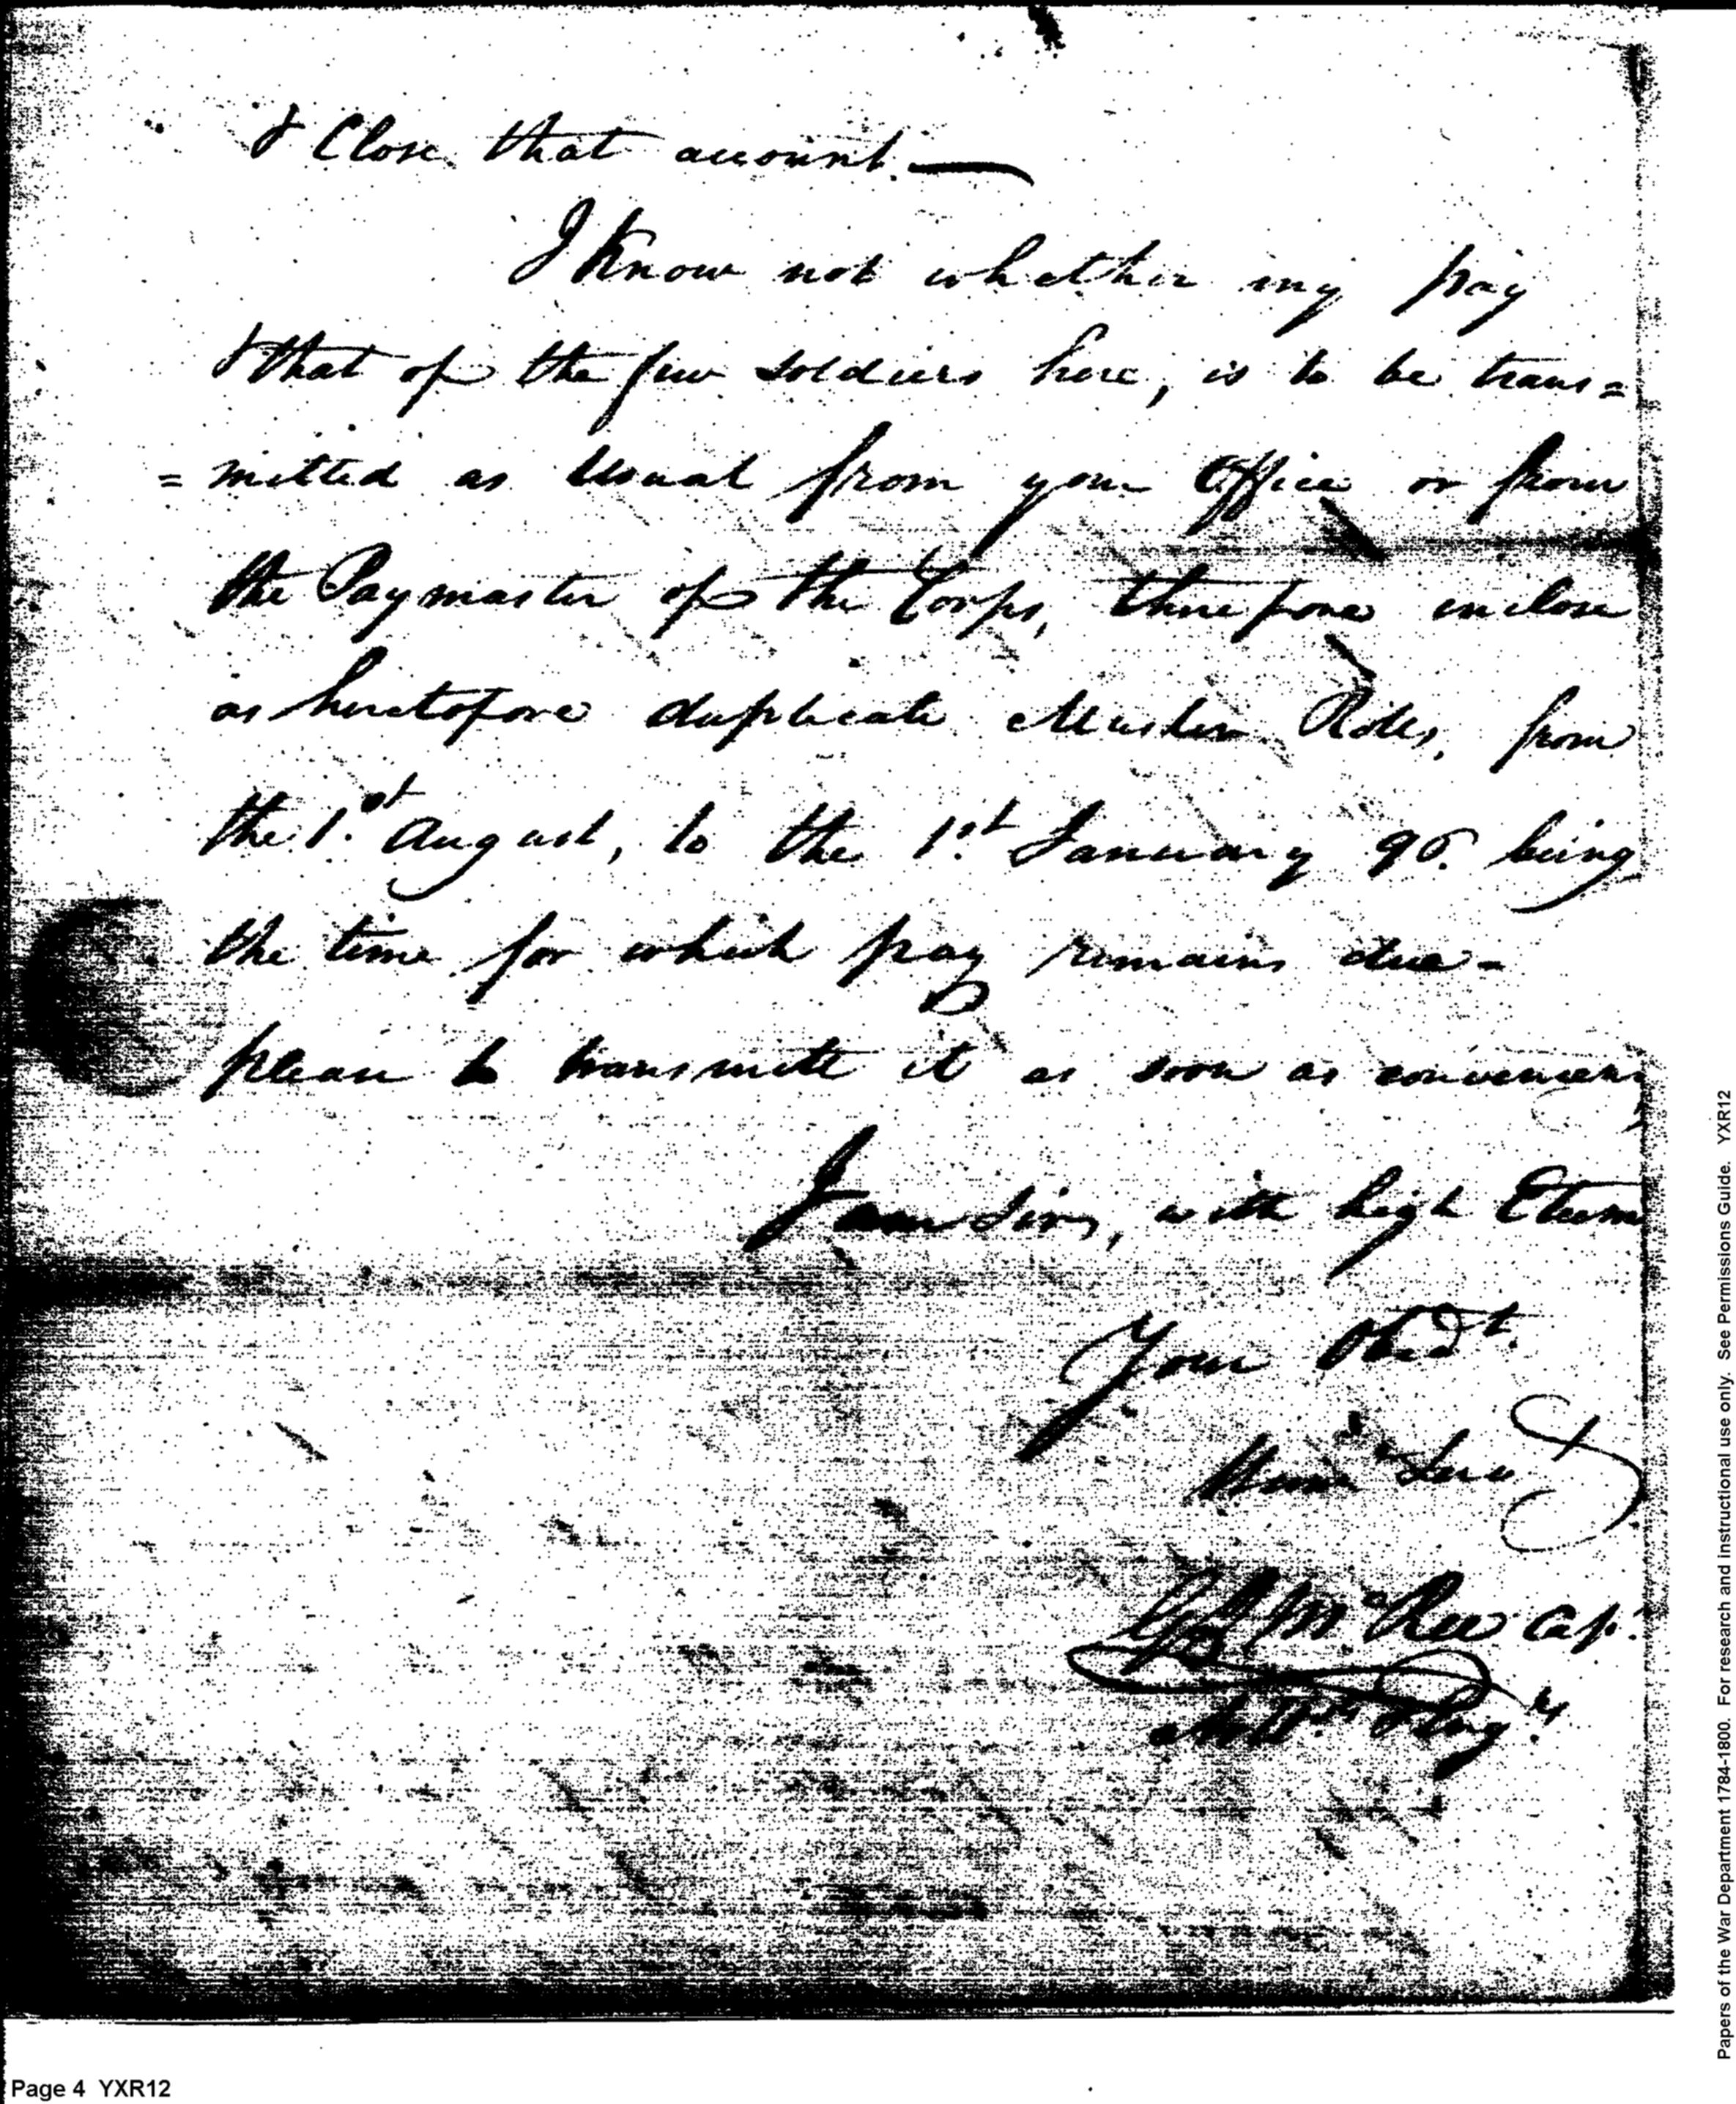 & Close that account.—
I Know not whether my pay
& that of the few soldiers here, is to be trans=
=mitted as Usual from your Office or from
the Paymaster of the Corps, therefore inclose
as heretofore duplicate Muster Rolls, from
the 1st. August, to the 1st. January 96. being
the time for which pay remains due -
please to transmitt it as soon as convenient
I am Sir, with high Esteem
Your Obedt.
Hum Serv
McRee Cap.
Papers of the War Department 1784-1800. For research and instructional use only. See Permissions Guide. YXR12
Page 4 YXR12